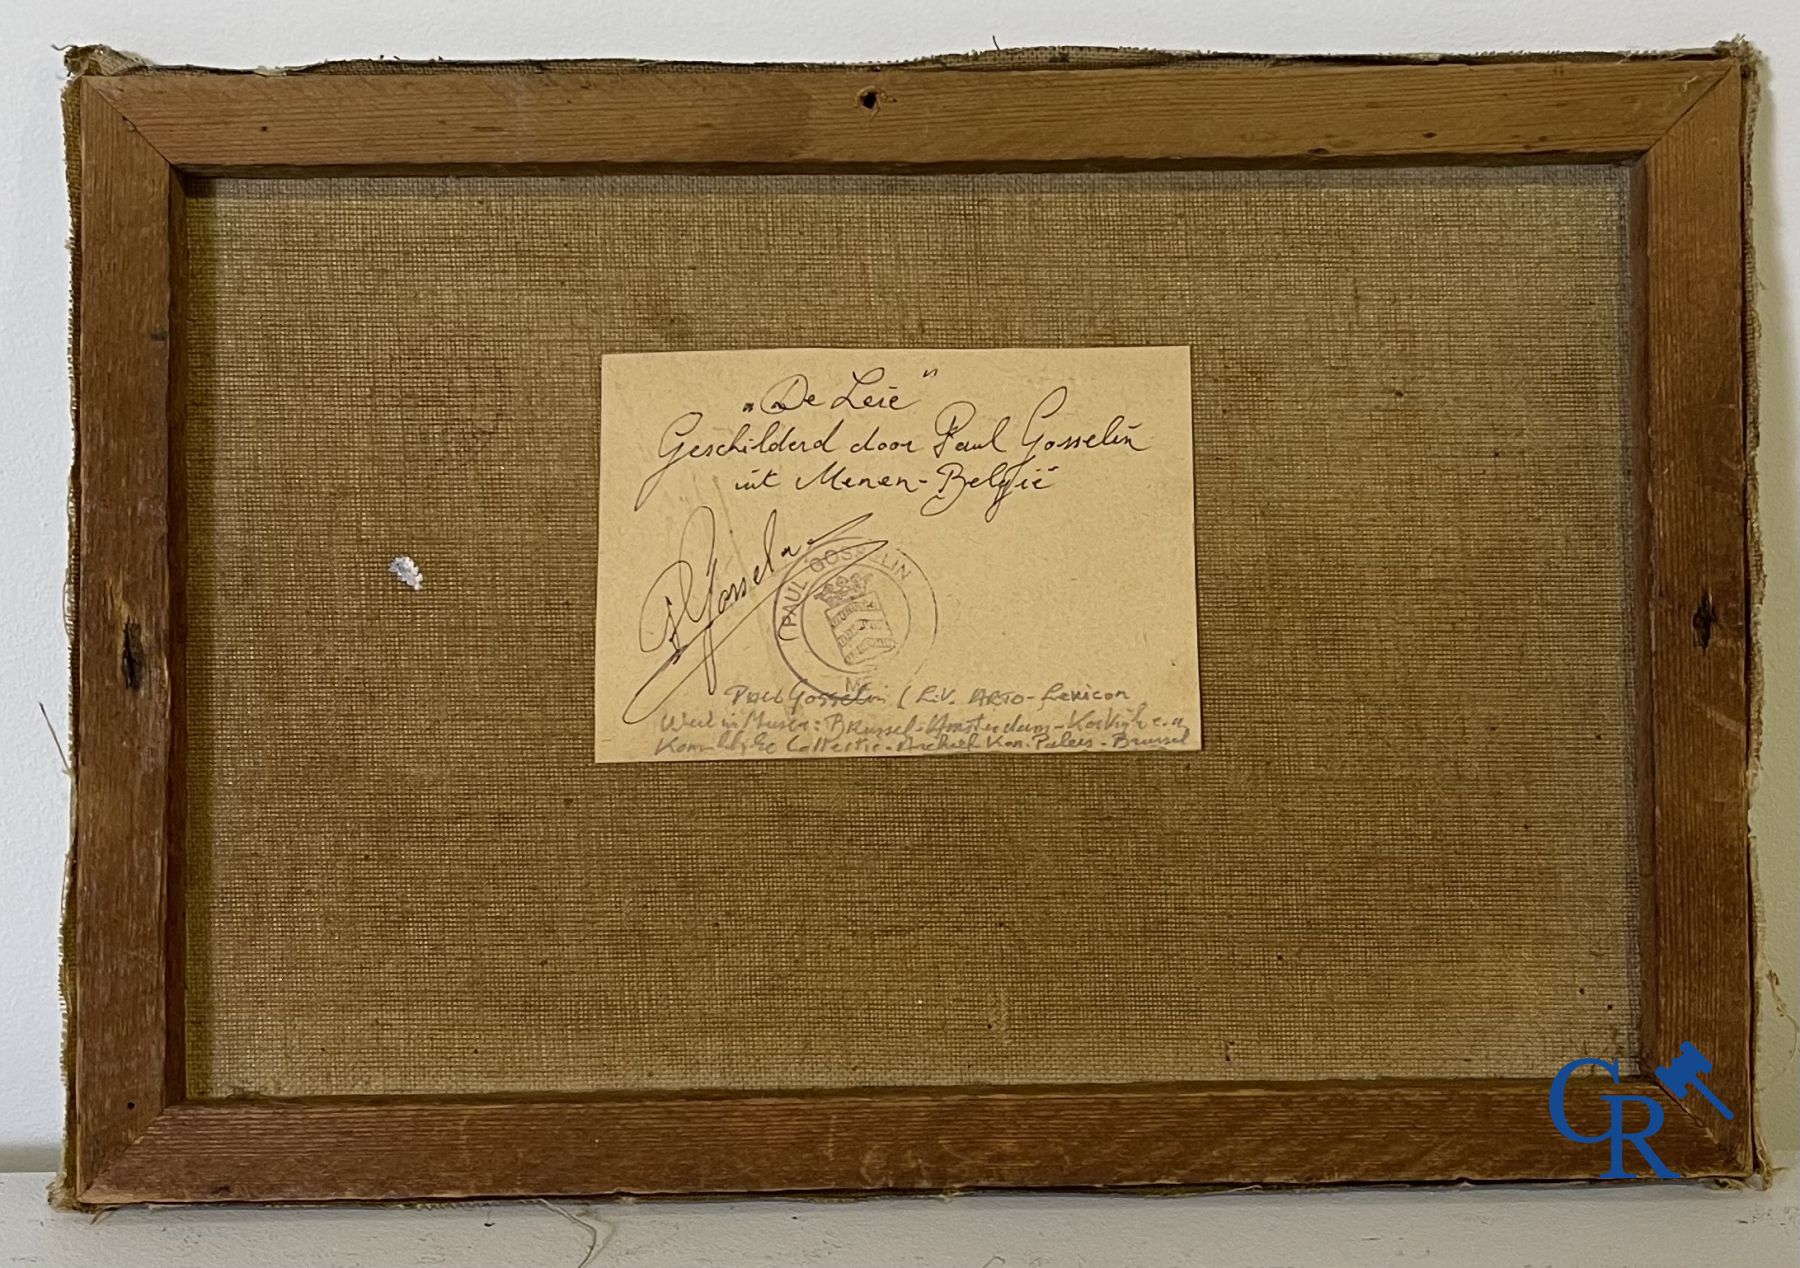 "De Leie"
Geschilderd door Paul Gosselin
uit Menen-België
P Gosselin
PAUL GOSSELIN
ME
Paul Gosselin ( Arto-Lexicon
Werk in Musea: Brussel-Amsterdam-Kortrijk e.a
Koninklijke Collectie-Archief Kon. Paleis-Brussel
CR